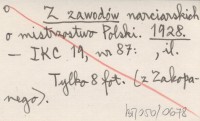 o Z zawodów narciarskich
o mistrzostwo Polski. 1928.
— IKC 19, nr 87: , il.
Tylko 8 fot. (z Zakopa-
nego).